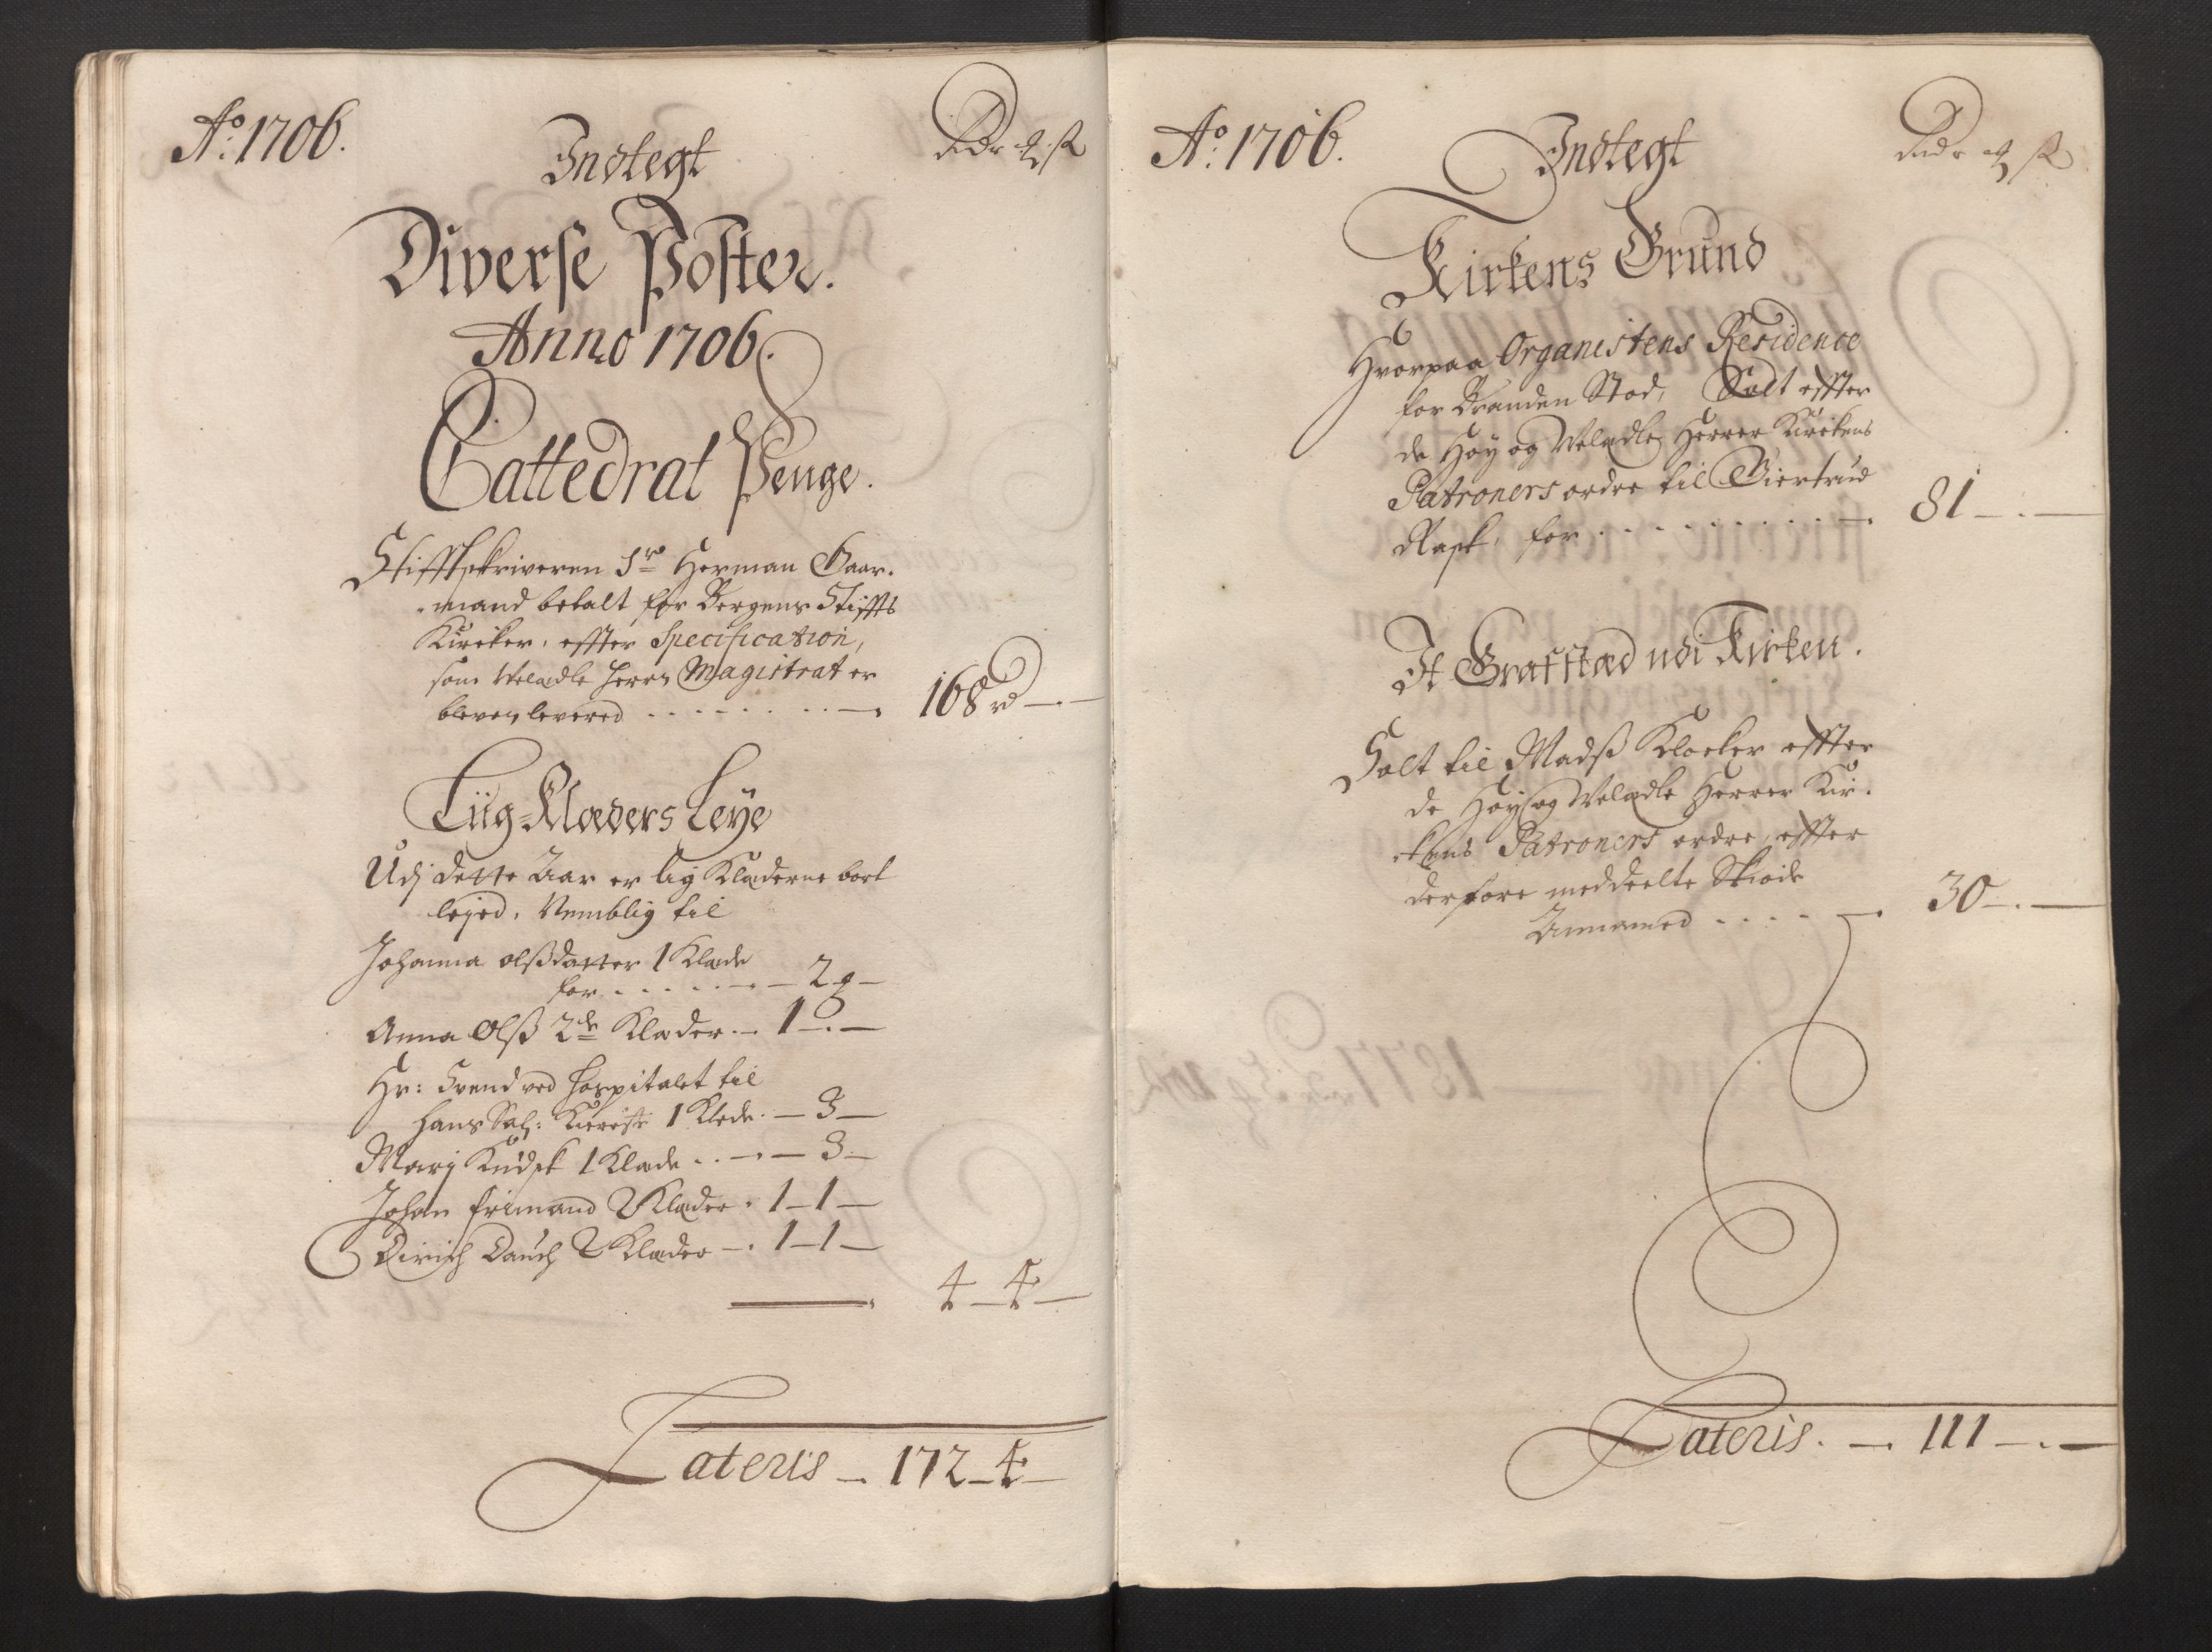 Ao: 1706.
Indtegt
Rdr ₰ ß
Diverse Poster.
Anno 1706.
Cattedrat Penge.
Stifftskriveren Sr Herman Gaar-
mand betalt for Bergens Stiffts
Kircker, effter Specification,
som Veledle Herrn Magistrat er
bleven levered . . . . . . . — 168 rd — . —
Liig-Klæders Leye
Udj dette Aar er lig Klæderne bort
lejed, Nemblig til
Johanna Olßdatter 1 Klæde
for . . . . . . — 2 ₰ —
Anna Olß 2de Klæder . — 1 — . —
Hr: Svend ved Hospitalet til
Hans Sal: Kieriste 1 Klæde . — 3 —
Mari Knudsk 1 Klæde . . — . — 3 —
Johan Frimand 2 Klæder . 1 — 1 —
Dirich Dauch 2 Klæder — . 1 — 1 —
4 — 4 —
Lateris — 172 — 4 —
Ao: 1706.
Indtegt
Rdr ₰ ß
Kirkens Grund
Hvorpaa Organistens Residence
for Branden Stod, Solt effter
de Høy og Veledle Herrer Kirckens
Patroners ordre til Giertrud
Rask, for . . . . . . . . . — 81 — . —
It Grafstæd udi Kirken.
Solt til Madß Klocker effter
de Høy og Veledle Herrer Kir-
ckens Patroners ordre, effter
derfore meddeelte Skiøde
Annamed . . . . — 30 — . —
Lateris. — 111 — . —